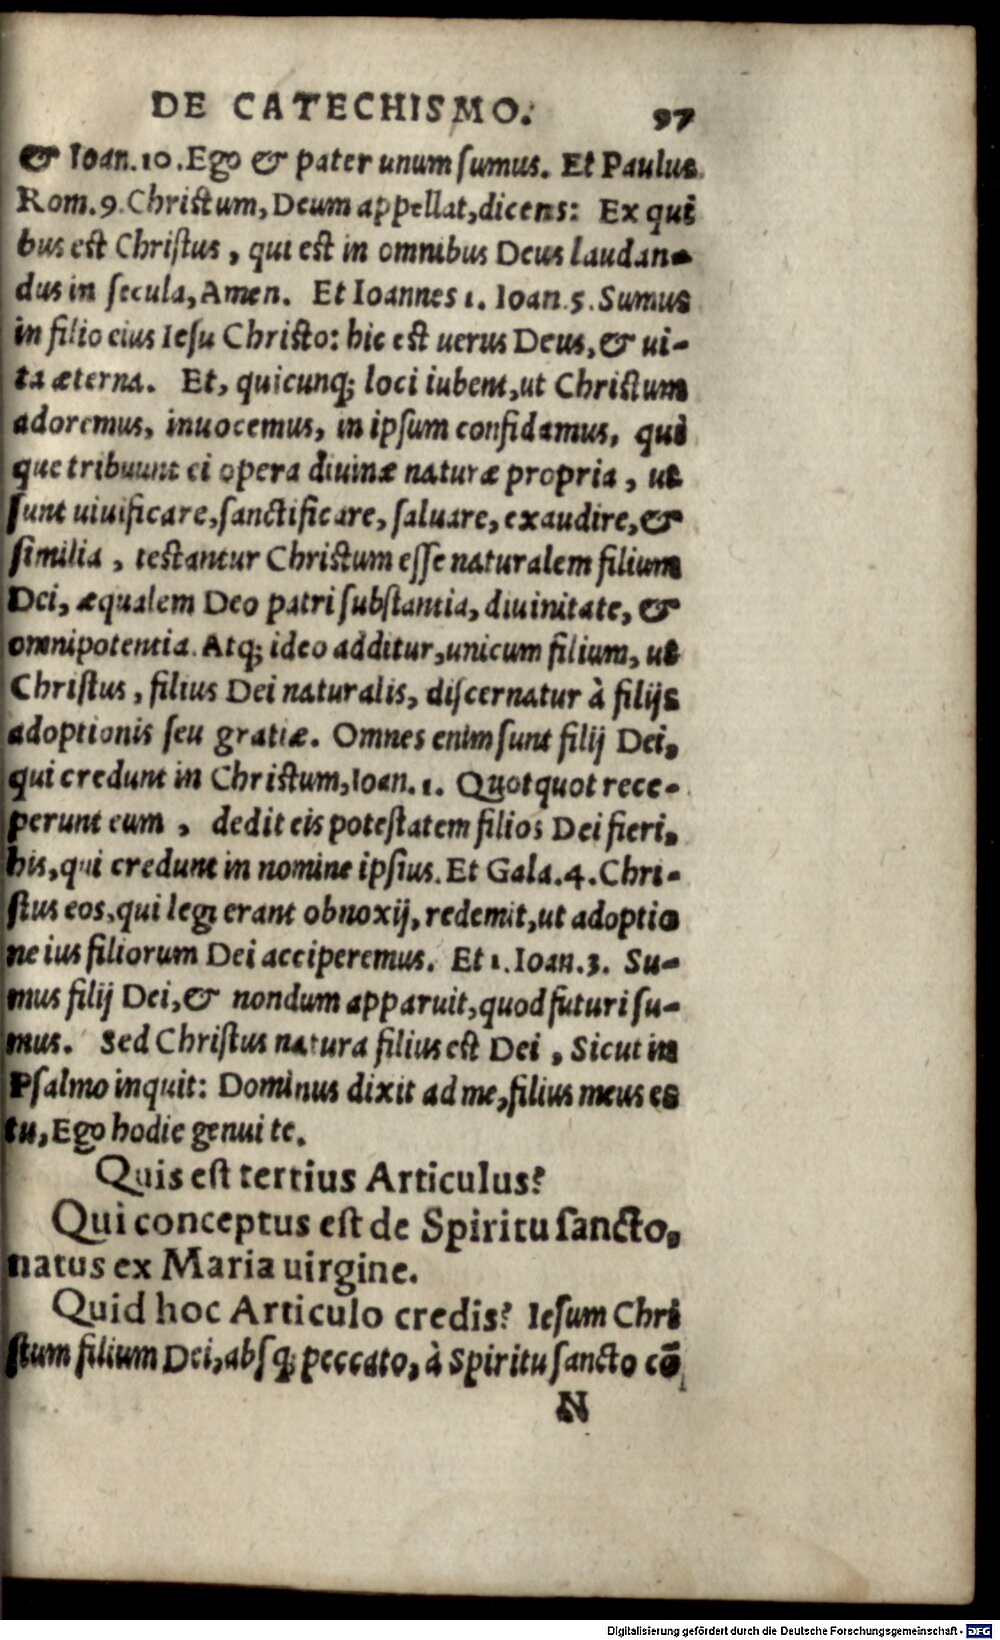 DE CATECHISMO. 97
& Ioan.10.Ego & pater unum sumus. Et Paulus
Rom.9.Christum, Deum appellat, dicens: Ex qui
bus est Christus, qui est in omnibus Deus laudan-
dus in secula, Amen. Et Ioannes 1. Ioan.5. Sumus
in filio eius Iesu Christo: hic est uerus Deus, & ui-
ta æterna. Et, quicunq; loci iubent, ut Christum
adoremus, inuocemus, in ipsum confidamus, qui
que tribuunt ei opera diuinæ naturæ propria, ut
sunt uiuificare, sanctificare, saluare, exaudire, &
similia, testantur Christum esse naturalem filium
Dei, æqualem Deo patri substantia, diuinitate, &
omnipotentia. Atq; ideo additur, unicum filium, ut
Christus, filius Dei naturalis, discernatur à filijs
adoptionis seu gratiæ. Omnes enim sunt filij Dei,
qui credunt in Christum, Ioan.1. Quotquot rece-
perunt eum, dedit eis potestatem filios Dei fieri,
his, qui credunt in nomine ipsius. Et Gala.4. Chri-
stus eos, qui legi erant obnoxij, redemit, ut adoptio
ne ius filiorum Dei acciperemus. Et 1. Ioan.3. Su-
mus filij Dei, & nondum apparuit, quod futuri su-
mus. Sed Christus natura filius est Dei, Sicut in
Psalmo inquit: Dominus dixit ad me, filius meus es
tu, Ego hodie genui te.
Quis est tertius Articulus?
Qui conceptus est de Spiritu sancto,
natus ex Maria uirgine.
Quid hoc Articulo credis? Iesum Chri
stum filium Dei, absq; peccato, à Spiritu sancto cō
N
Digitalisierung gefördert durch die Deutsche Forschungsgemeinschaft - DFG